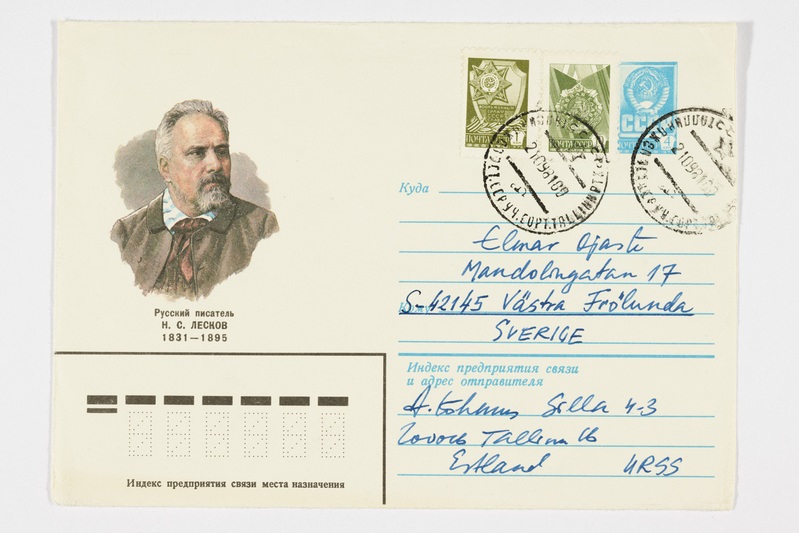 Русский писатель
Н. С. ЛЕСКОВ
1831—1895
Индекс предприятия связи места назначения
ПОЧТА СССР
1
ПОЧТА СССР
СССР
4
TALLINN
Куда
Elmar Ojaste
Mandolingatan 17
S-42145 Västra Frölunda
SVERIGE
Индекс предприятия связи
и адрес отправителя
Silla 4-3
Tallinn
Estland URSS